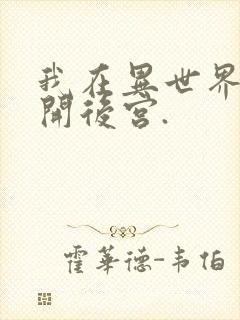 我在異世界
開後宮.
霍華德-韦伯